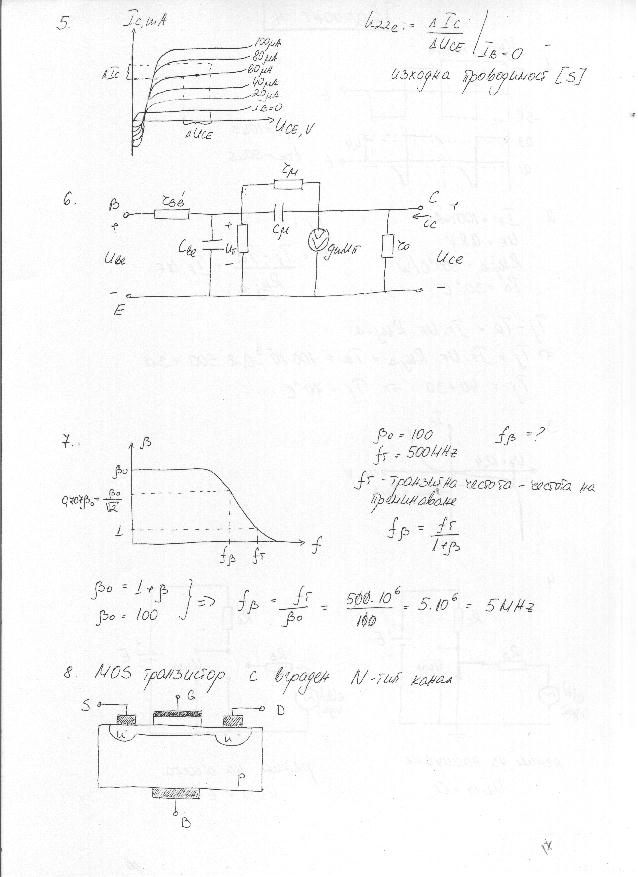 5.
Ic, mA
ΔIc
100μA
80μA
60μA
40μA
20μA
IB=0
ΔUCE
UCE, V
h22e = ΔIc / ΔUCE | IB=0
изходна проводимост [S]
6.
B
rBB'
rμ
C
+
+
Cμ
ic
Cbe
Uπ
+
-
gmUπ
ro
Ube
Uce
-
-
E
7.
β
βo
0,707βo = βo/√2
1
fβ
fT
f
βo = 100
fβ = ?
fT = 500MHz
fT - транзитна честота - честота на
преминаване
fβ = fT / 1+β
βo = 1+β
βo = 100
=> fβ = fT / βo = 500.10^6 / 100 = 5.10^6 = 5MHz
8. MOS транзистор с вграден N-тип канал
S
G
D
n
n
P
B